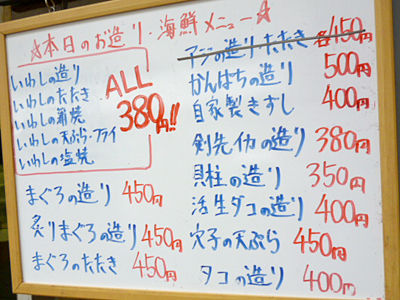 ☆本日のお造り・海鮮メニュー☆
いわしの造り
いわしのたたき
いわしの蒲焼
いわしの天ぷら・フライ
いわしの塩焼
ALL
380円!!
まぐろの造り 450円
炙りまぐろの造り 450円
まぐろのたたき 450円
アジの造り・たたき 各450円
かんぱちの造り 500円
自家製きずし 400円
剣先イカの造り 380円
貝柱の造り 350円
活生ダコの造り 400円
穴子の天ぷら 450円
タコの造り 400円